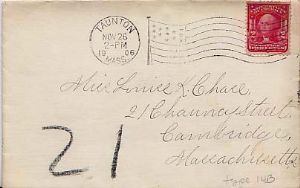 TAUNTON
NOV 26
2-PM
1906
MASS.
Miss Louise K. Chace,
21 Chauncy Street,
Cambridge,
Massachusetts
21
type 14B